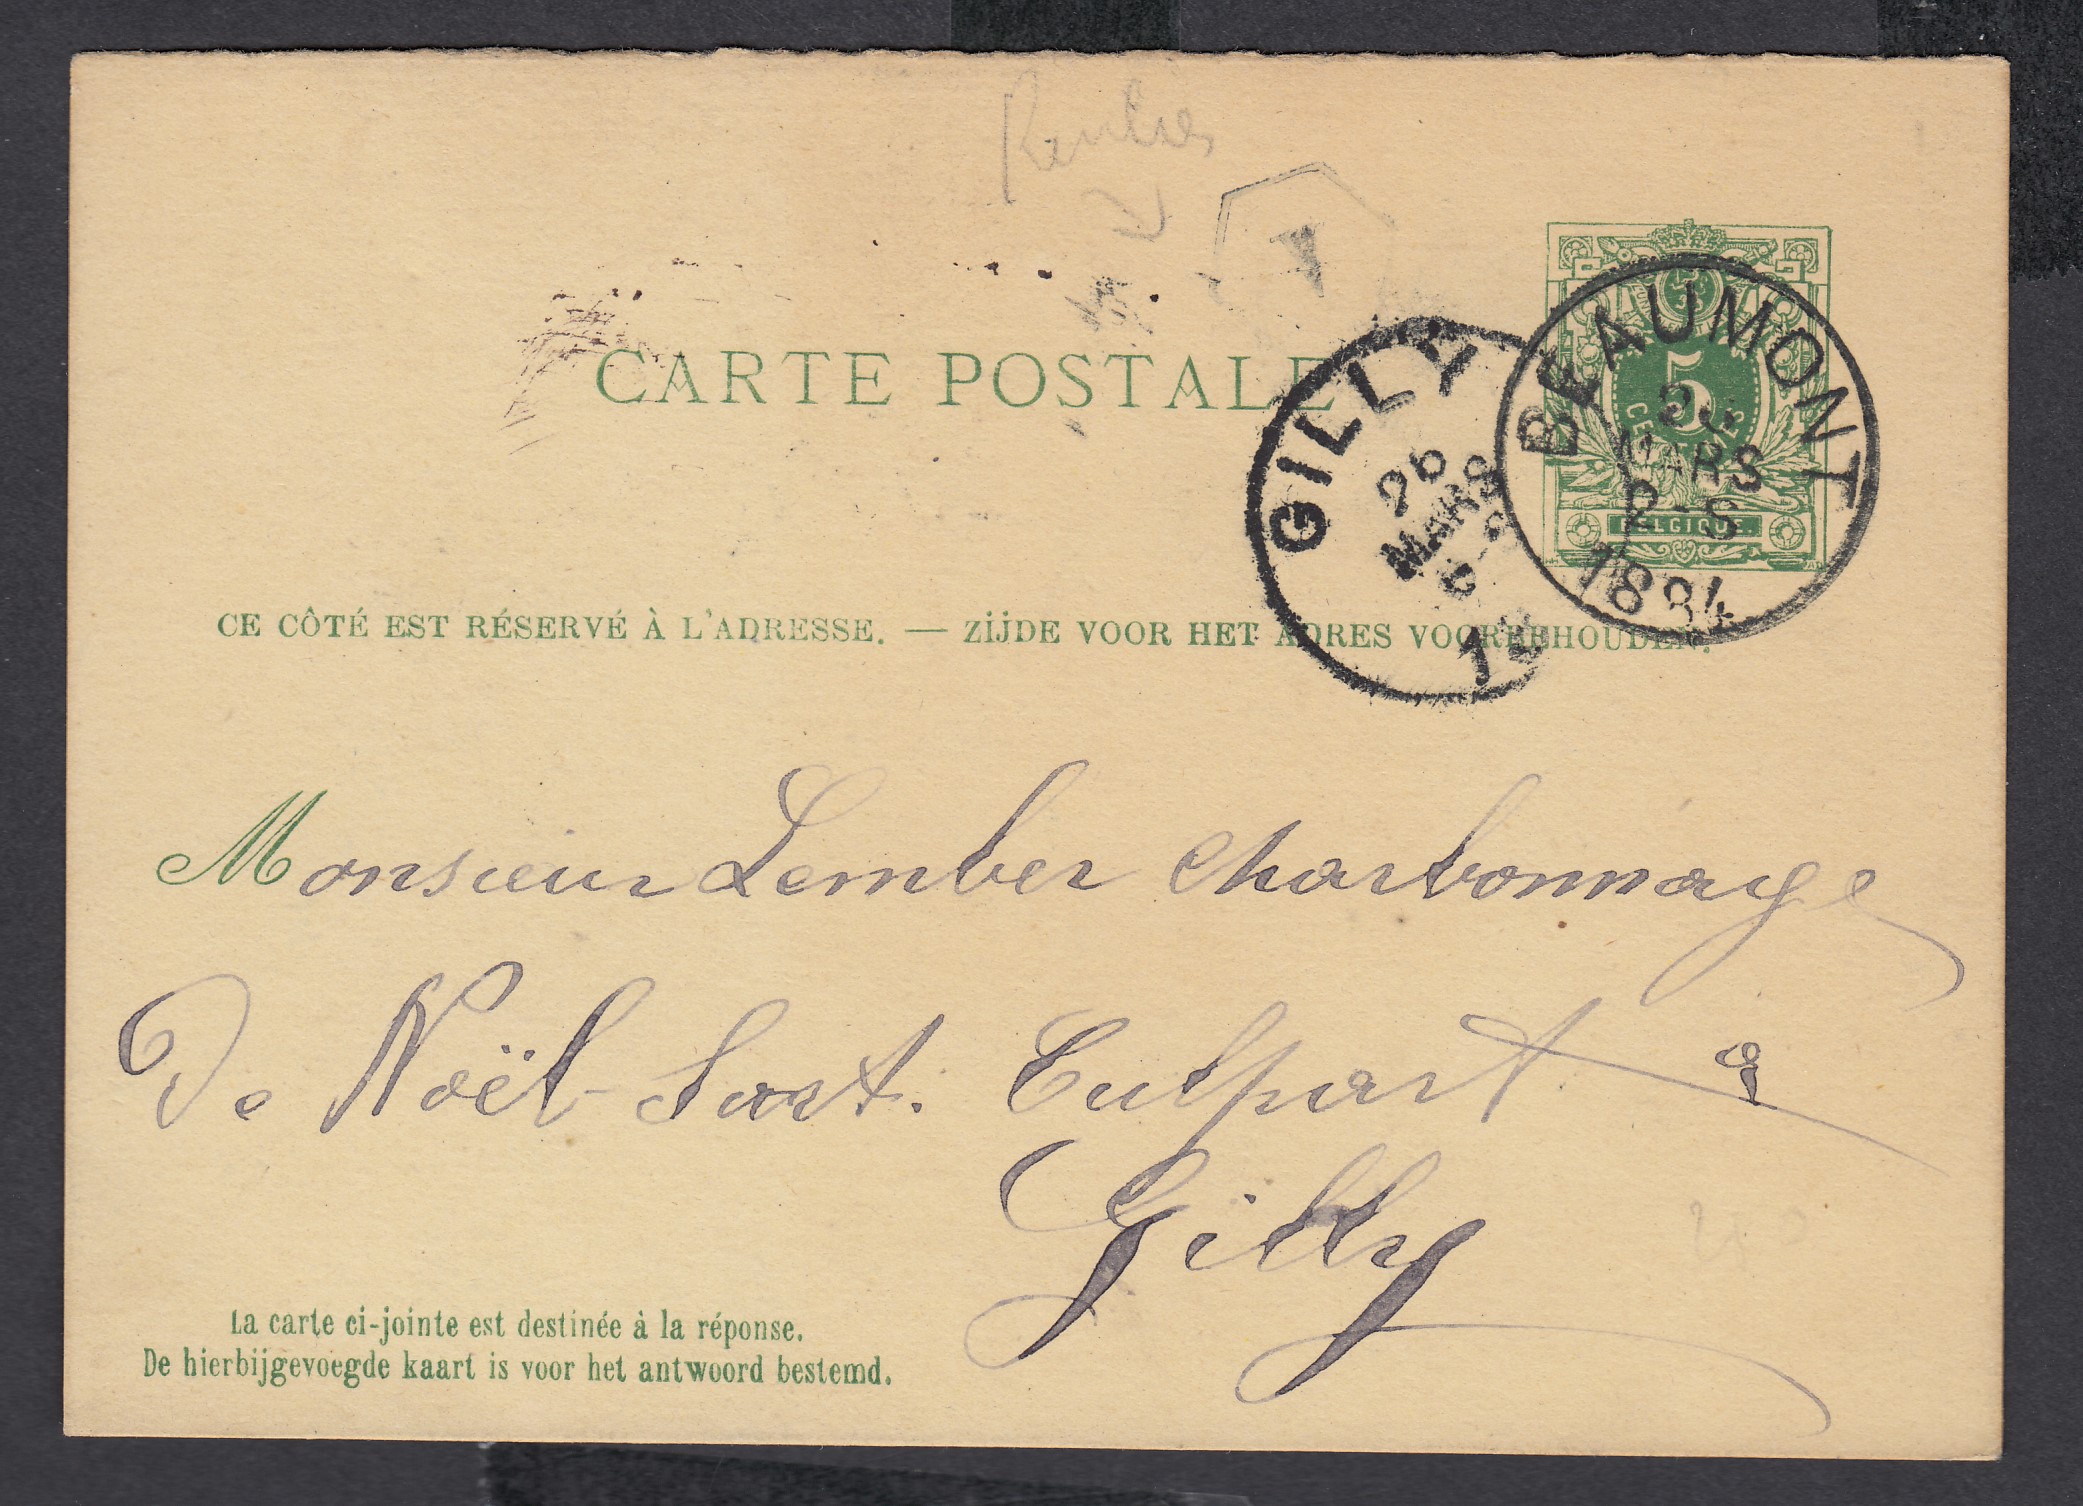 CARTE POSTALE
5
CENTIMES
BELGIQUE.
BEAUMONT
MARS
1884
GILLY
26
MARS
CE CÔTÉ EST RÉSERVÉ À L'ADRESSE. — ZIJDE VOOR HET ADRES VOORBEHOUDEN.
Monsieur Lember Charbonnage
De Noël-Sart. Culpart à
Gilly
La carte ci-jointe est destinée à la réponse.
De hierbijgevoegde kaart is voor het antwoord bestemd.